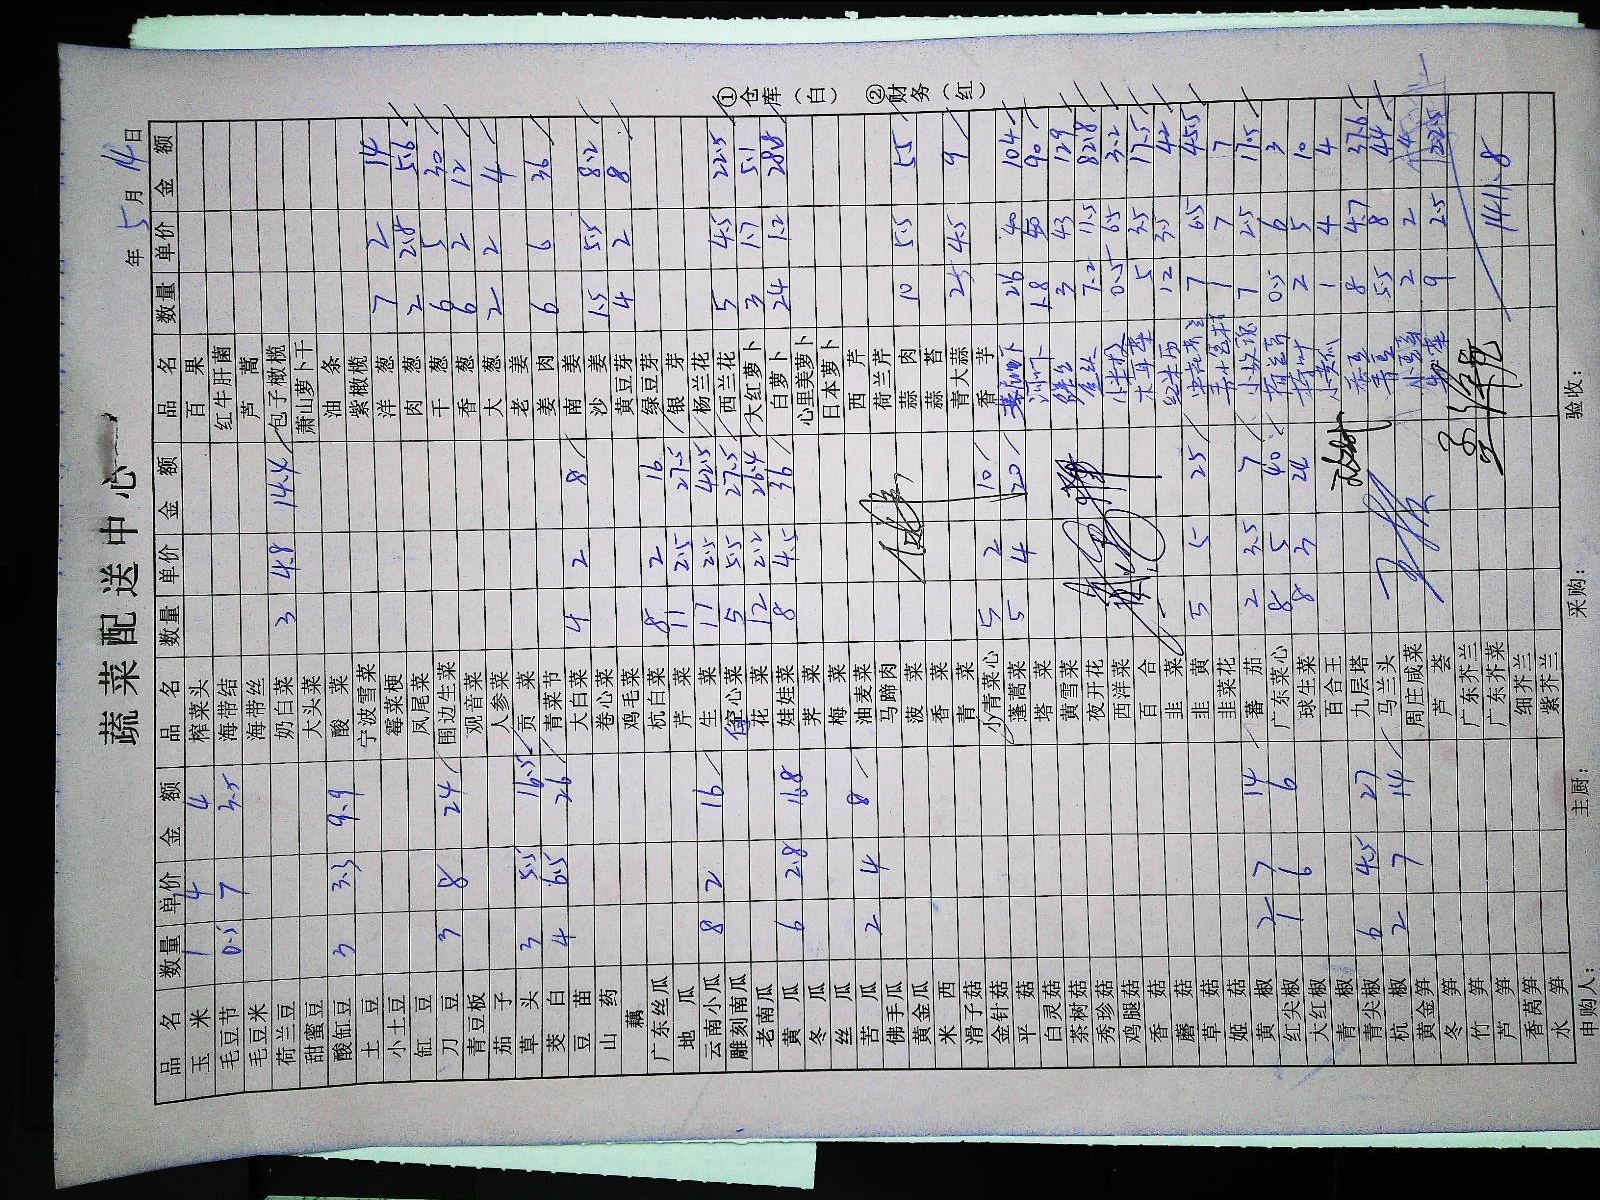 蔬菜配送中心
年 5 月 14 日
品名 数量 单价 金额 品名 数量 单价 金额 品名 数量 单价 金额
玉米 1 4 4 榨菜头 百果
毛豆节 0.5 7 3.5 海带结 红牛肝菌
毛豆米 海带丝 芦蒿
荷兰豆 奶白菜 3 4.8 14.4 包子橄榄
甜蜜豆 大头菜 萧山萝卜干
酸缸豆 3 3.3 9.9 酸菜 油条
土豆 宁波雪菜 紫橄榄
小土豆 霉菜梗 洋葱 7 2 14
缸豆 凤尾菜 肉葱 2 2.8 5.6
刀豆 3 8 24 围边生菜 干葱 6 5 30
青豆板 观音菜 香葱 6 2 12
茄子 人参菜 大葱 2 2 4
草头 3 5.5 16.5 贡菜 老姜
茭白 4 6.5 26 青菜节 姜肉 6 6 36
豆苗 大白菜 4 2 8 南姜
山药 卷心菜 沙姜 1.5 5.5 8.2
藕 鸡毛菜 黄豆芽 4 2 8
广东丝瓜 杭白菜 8 2 16 绿豆芽
地瓜 芹菜 11 2.5 27.5 银芽
云南小瓜 8 2 16 生菜 17 2.5 42.5 杨兰花
雕刻南瓜 空心菜 5 5.5 27.5 西兰花 5 4.5 22.5
老南瓜 花菜 12 2.2 26.4 大红萝卜 3 1.7 5.1
黄瓜 6 2.8 16.8 娃娃菜 8 4.5 36 白萝卜 24 1.2 28.8
冬瓜 荠菜 心里美萝卜
丝瓜 梅菜 日本萝卜
苦瓜 2 4 8 油麦菜 西芹
佛手瓜 马蹄肉 荷兰芹
黄金瓜 菠菜 蒜肉 10 5.5 55
米西 香菜 蒜苔
滑子菇 青菜 青大蒜 4.5 9
金针菇 小青菜心 5 2 10 香芋
平菇 蓬蒿菜 5 4 20 2.6 40 104
白灵菇 塔菜 1.8 50 90
茶树菇 黄雪菜 3 43 129
秀珍菇 夜开花 7.2 11.5 82.8
鸡腿菇 西洋菜 0.5 6.5 3.2
香菇 百合 木耳菜 5 3.5 17.5
蘑菇 韭菜 12 3.5 42
草菇 韭黄 5 5 25 7 6.5 45.5
姬菇 韭菜花 1 7 7
黄椒 2 7 14 蕃茄 2 3.5 7 7 2.5 17.5
红尖椒 1 6 6 广东菜心 8 5 40 0.5 6 3
大红椒 球生菜 8 3 24 2 5 10
青椒 百合王 小黄瓜 1 4 4
青尖椒 6 4.5 27 九层塔 8 4.7 37.6
杭椒 2 7 14 马兰头 青豆 5.5 8 44
黄金笋 周庄咸菜 2 2 4
冬笋 芦荟 9 2.5 22.5
竹笋 广东芥兰
芦笋 广东芥菜 1411.8
香莴笋 细芥兰
水笋 紫芥兰
申购人： 主厨： 采购： 验收：
①仓库（白） ②财务（红）